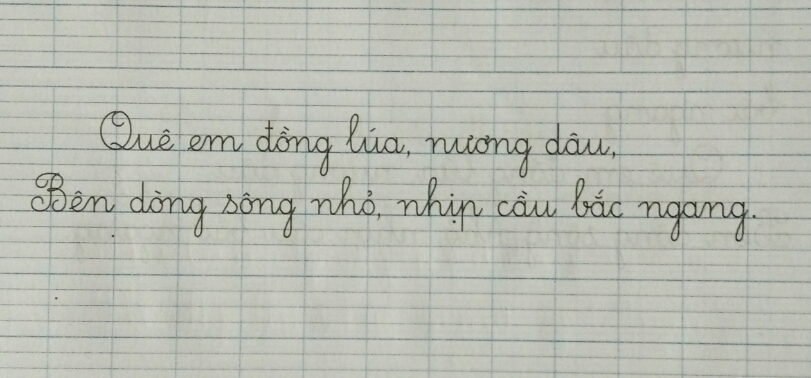 Quê em đồng lúa, nương dâu,
Bên dòng sông nhỏ, nhịp cầu bắc ngang.